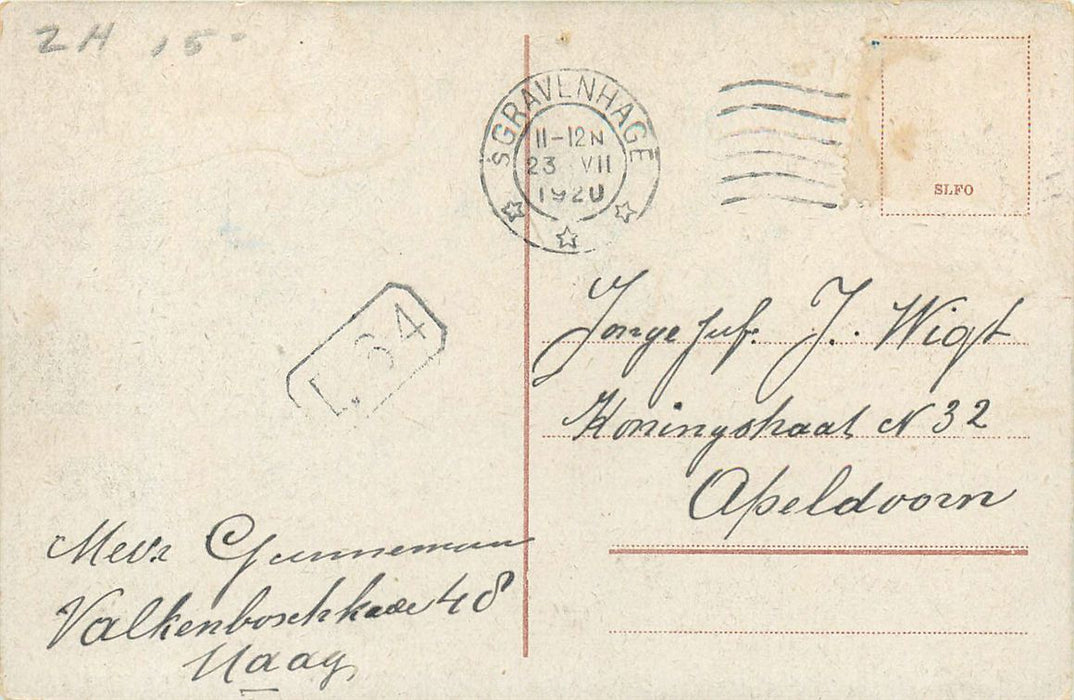 ZH 15-
'SGRAVENHAGE
11-12N
23 VII
1920
SLFO
L. 34
Jonge juf. J. Wigt
Koningstraat N 32
Apeldoorn
Mevr Gunneman
Valkenboschkade 48
Haag